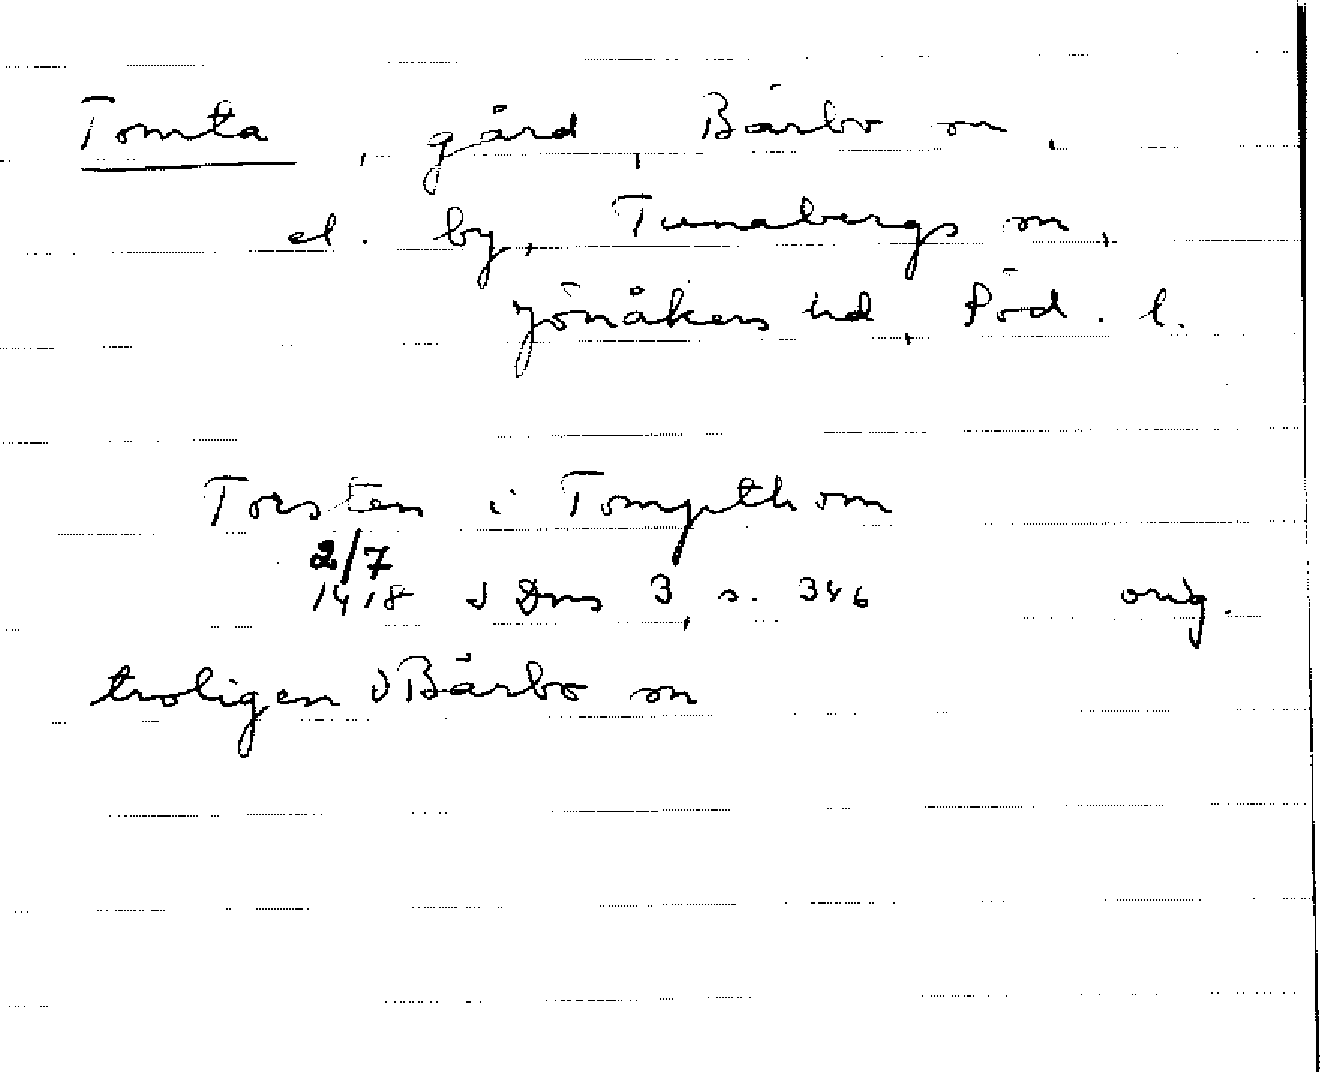 Tomta, gård, Bärbo sn,
el. by, Tunabergs sn,
Jönåkers hd, Söd. l.
Torsten i Tompthom
2/7
1418 SDns 3, s. 346 orig.
troligen Bärbo sn